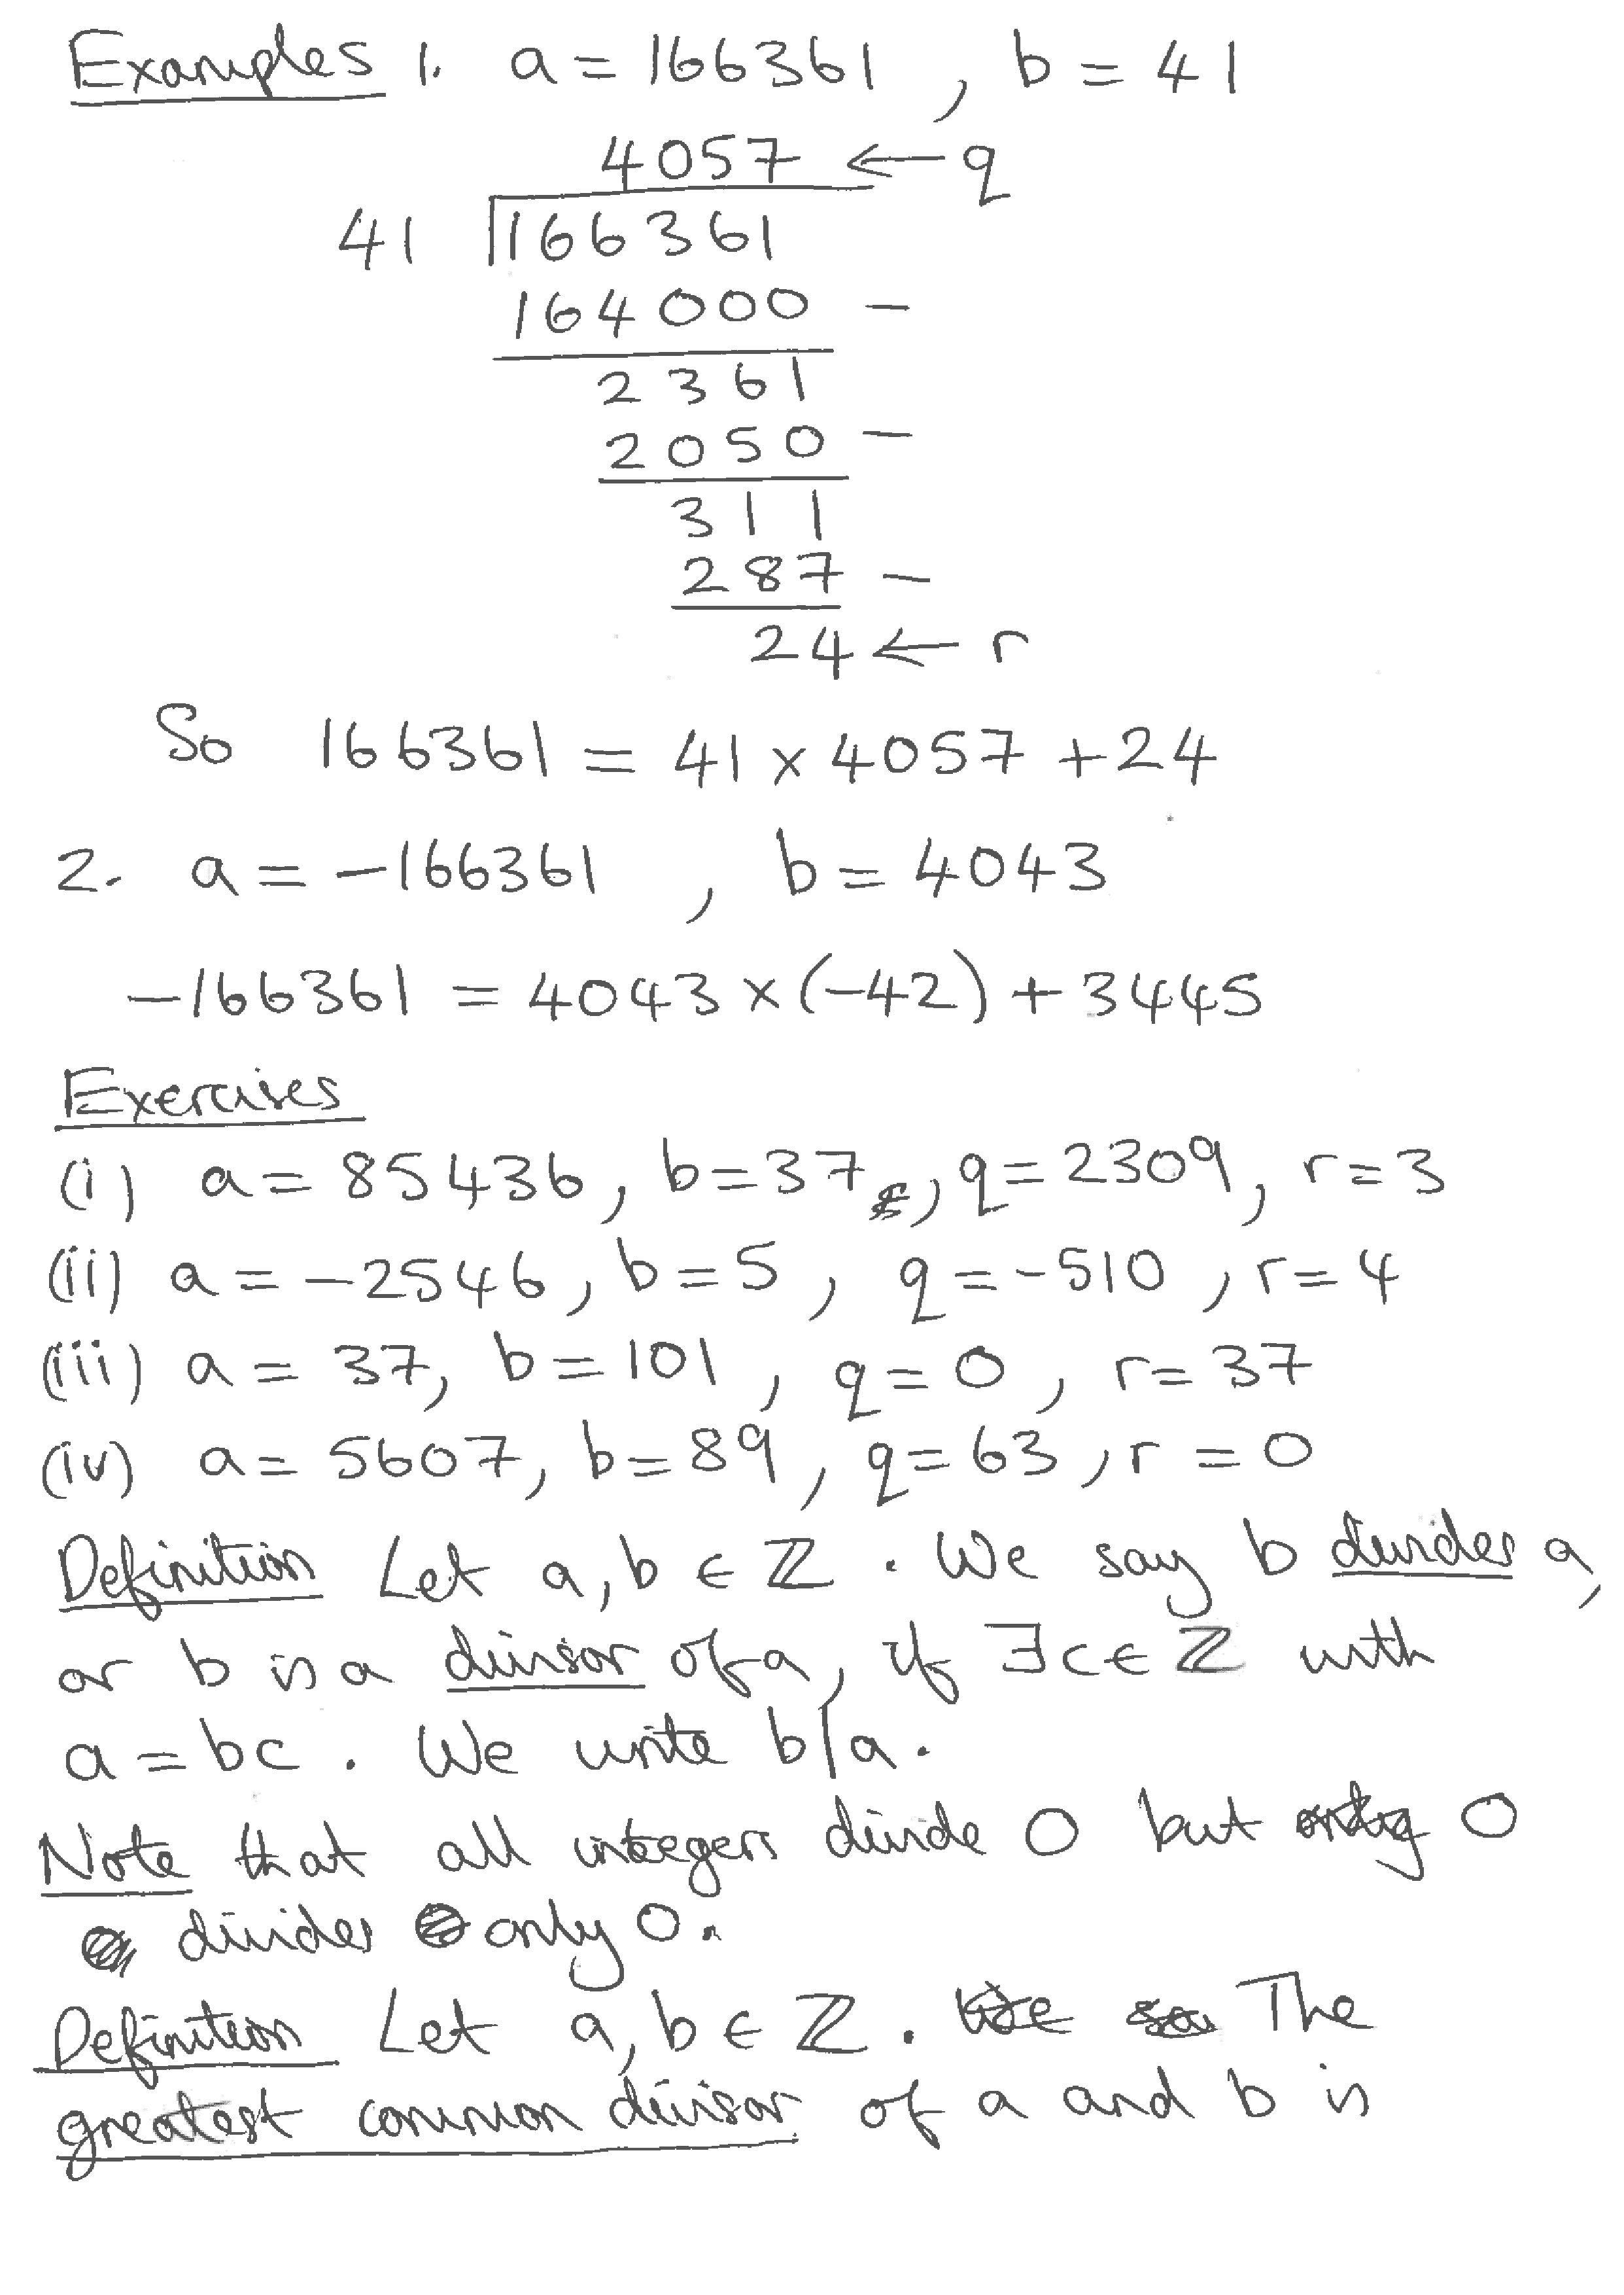 Examples 1. a = 166361, b = 41
4057 ← q
41 166361
164000 -
2361
2050 -
311
287 -
24 ← r
So 166361 = 41 × 4057 + 24
2. a = -166361, b = 4043
-166361 = 4043 × (-42) + 3445
Exercises
(i) a = 85436, b = 37, q = 2309, r = 3
(ii) a = -2546, b = 5, q = -510, r = 4
(iii) a = 37, b = 101, q = 0, r = 37
(iv) a = 5607, b = 89, q = 63, r = 0
Definition Let a, b ∈ ℤ. We say b divides a,
or b is a divisor of a, if ∃ c ∈ ℤ with
a = bc. We write b|a.
Note that all integers divide 0 but 0
divides only 0.
Definition Let a, b ∈ ℤ. The
greatest common divisor of a and b is